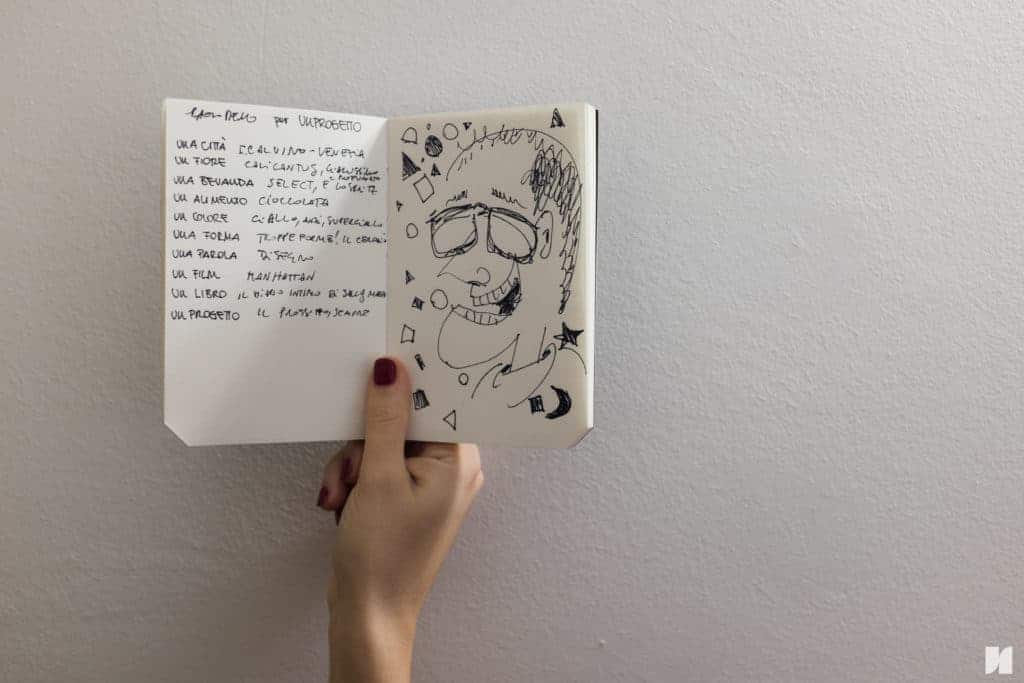 per UNPROGETTO
UNA CITTÀ VENEZIA
UN FIORE CALICANTUS,
UNA BEVANDA SELECT, E LO SPRITZ
UN ALIMENTO CIOCCOLATA
UN COLORE GIALLO, ANZI, SUPERGIALLO
UNA FORMA TROPPE FORME! IL
UNA PAROLA DISEGNO
UN FILM MANHATTAN
UN LIBRO IL DIARIO INTIMO DI SALLY MARA
UN PROGETTO IL PROSSIMO, SEMPRE